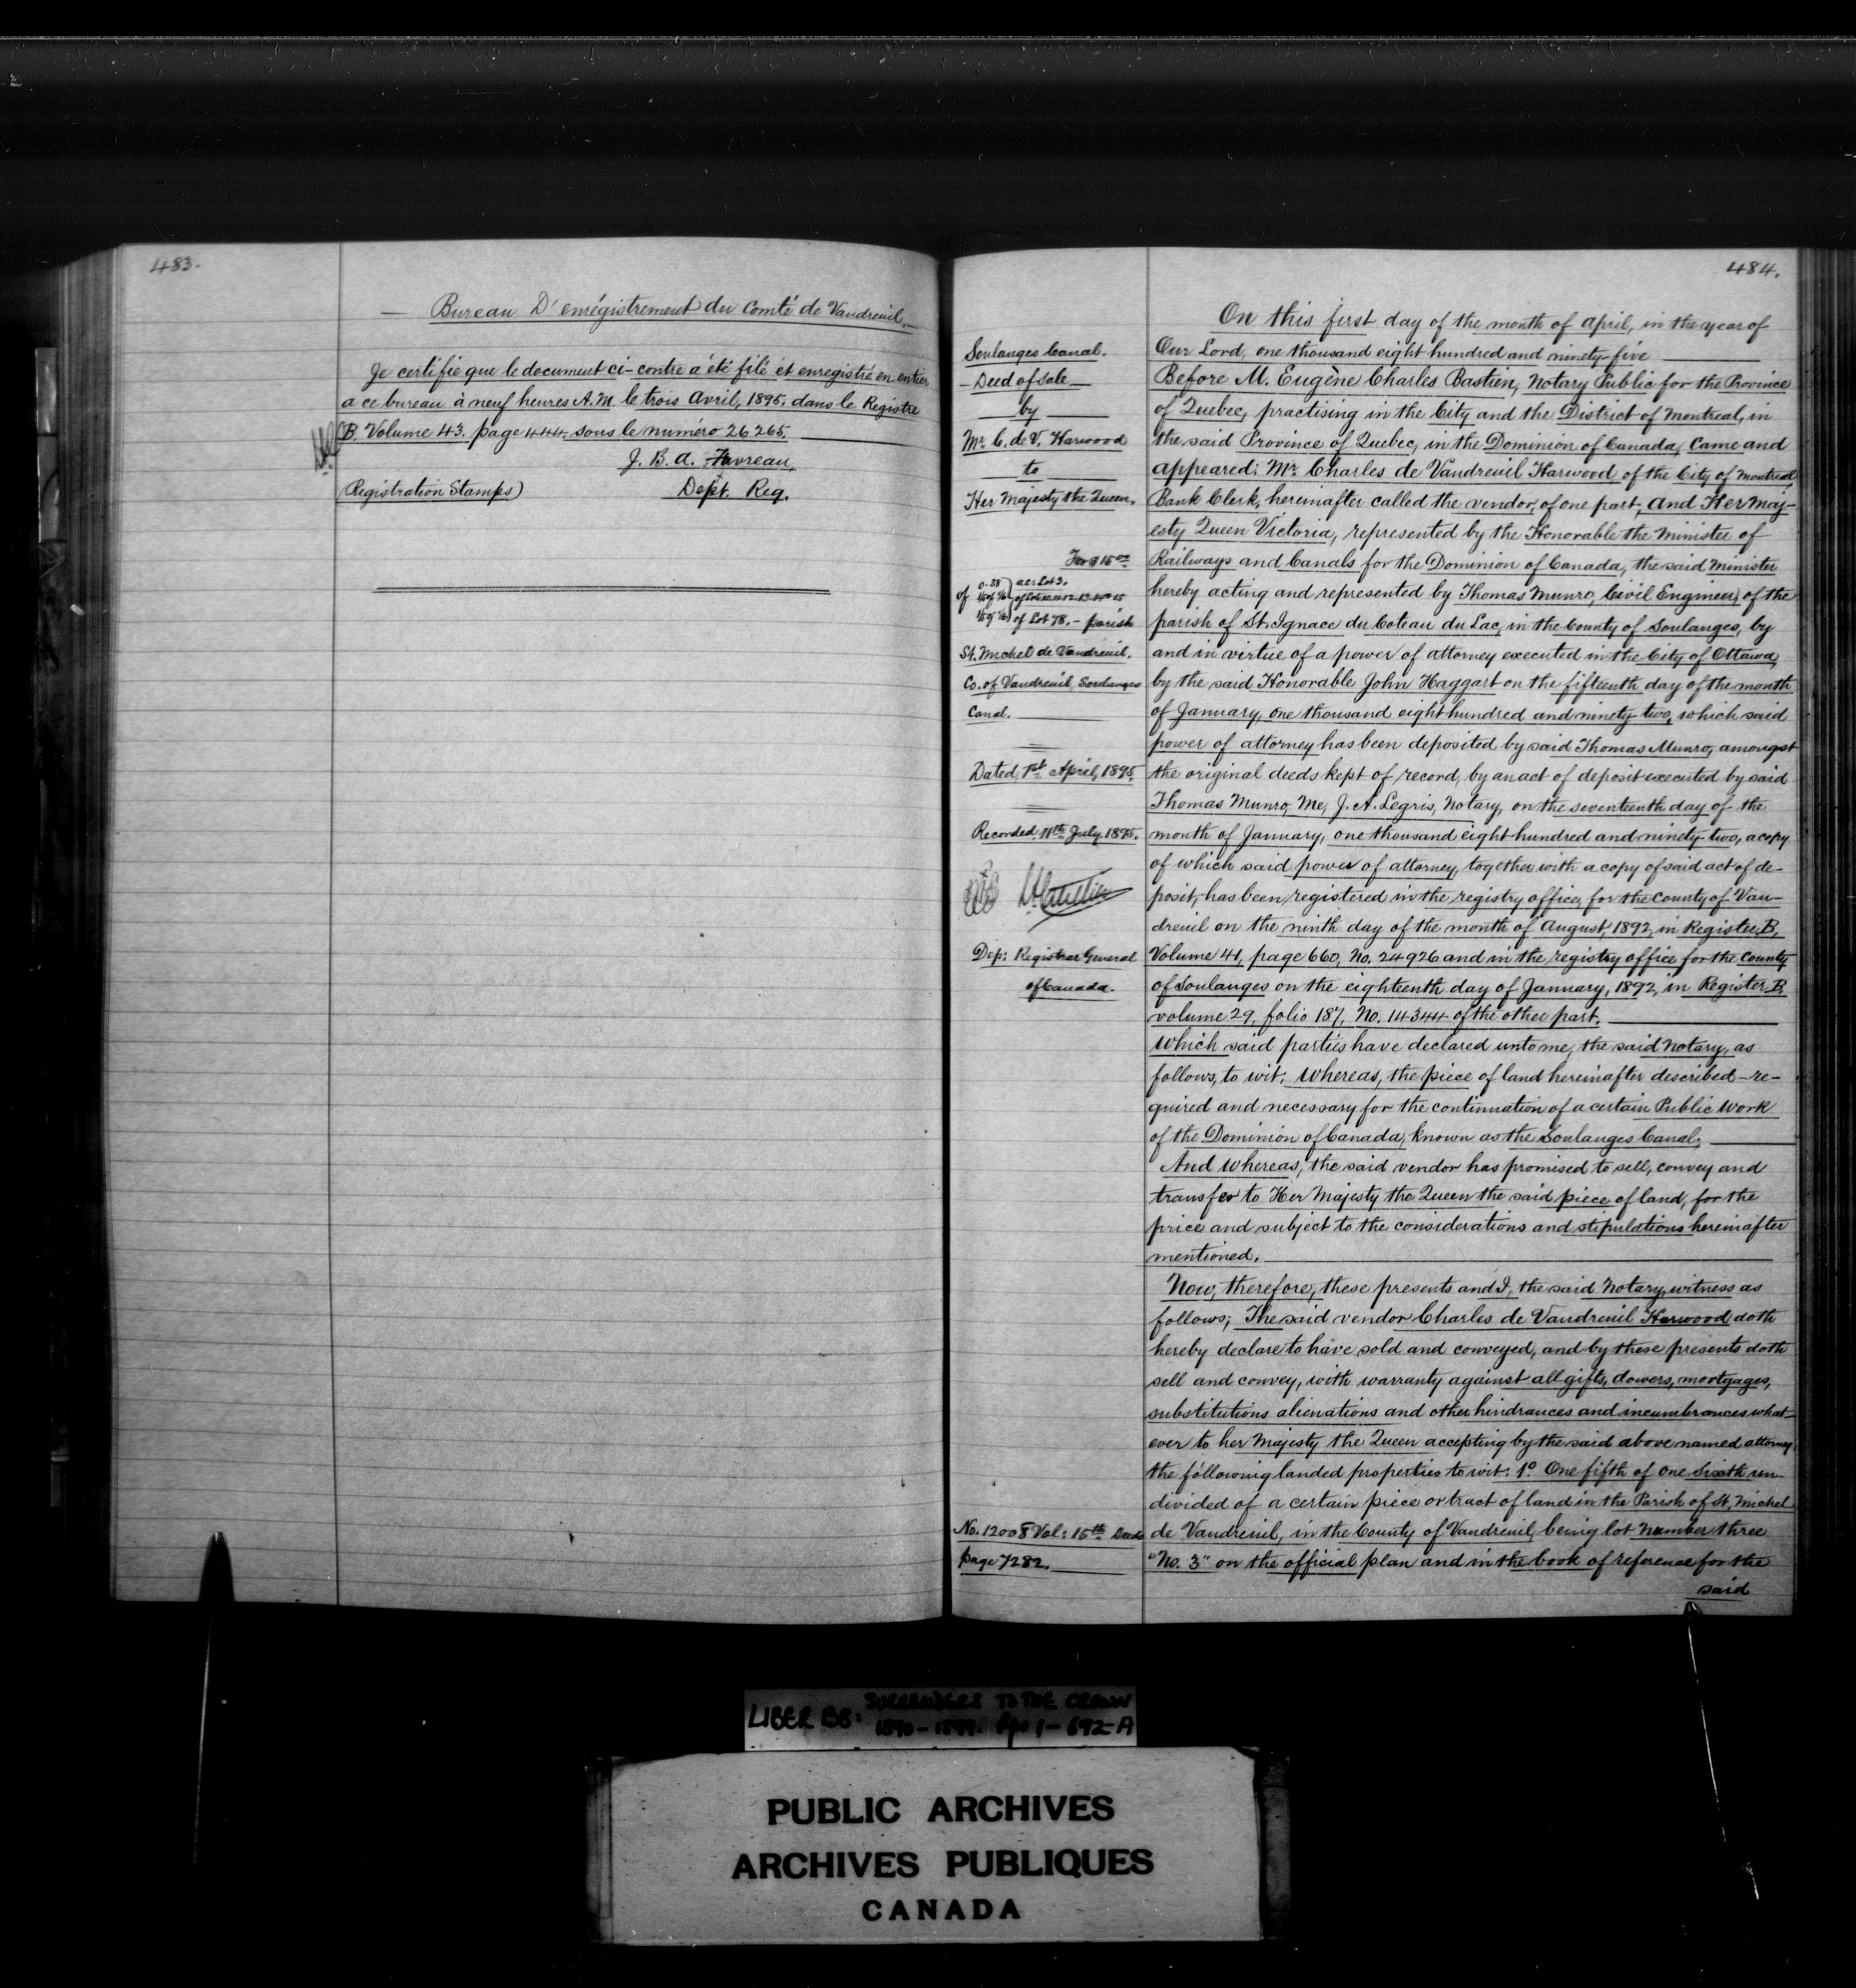 483.
— Bureau D'enrégistrement du Comté de Vaudreuil. —
Je certifie que le document ci-contre a été filé et enregistré en entier
a ce bureau à neuf heures A.M. le trois Avril, 1895. dans le Registre
B. Volume 43. page 444. sous le numéro 26265.
J. B. A. Favreau,
(Registration Stamps) Dept. Reg.
484.
Soulanges Canal.
— Deed of Sale —
by
Mr. C. de V. Harwood
to
Her Majesty the Queen.
For $15 00
of 0.38 ac: Lot 3.
1/5 of 1/6
1/5 of 1/6 of Lot 78. - parish
St. Michel de Vaudreuil.
Co. of Vaudreuil Soulanges
Canal.
Dated, 1st April, 1895.
Recorded 11th July 1895.
Dep: Registrar General
of Canada.
No. 12008 Vol: 15th Deeds
page 7282.
On this first day of the month of April, in the year of
Our Lord, one thousand eight hundred and ninety-five
Before M. Eugène Charles Bastien, Notary Public for the Province
of Quebec, practising in the City and the District of Montreal, in
the said Province of Quebec, in the Dominion of Canada, Came and
appeared: Mr. Charles de Vaudreuil Harwood of the City of Montreal
Bank Clerk, hereinafter called the vendor, of one part, And Her Maj-
esty Queen Victoria, represented by the Honorable the Minister of
Railways and Canals for the Dominion of Canada, the said Minister
hereby acting and represented by Thomas Munro, Civil Engineer, of the
parish of St. Ignace du Coteau du Lac, in the County of Soulanges, by
and in virtue of a power of attorney executed in the City of Ottawa,
by the said Honorable John Haggart on the fifteenth day of the month
of January, one thousand eight hundred and ninety-two, which said
power of attorney has been deposited by said Thomas Munro, amongst
the original deeds kept of record, by an act of deposit executed by said
Thomas Munro, Me, J. A. Legris, Notary, on the seventeenth day of the
month of January, one thousand eight hundred and ninety-two, a copy
of which said power of attorney, together with a copy of said act of de-
posit, has been registered in the registry office, for the County of Vau-
dreuil on the ninth day of the month of August, 1892, in Register, B,
Volume 41, page 660, No. 24926 and in the registry office for the County
of Soulanges on the eighteenth day of January, 1892, in Register B,
volume 29, folio 187, No. 14344 of the other part.
Which said parties have declared unto me, the said Notary, as
follows, to wit: Whereas, the piece of land hereinafter described – re-
quired and necessary for the continuation of a certain Public Work
of the Dominion of Canada, known as the Soulanges Canal;
And Whereas, the said vendor has promised to sell, convey and
transfer to Her Majesty the Queen the said piece of land, for the
price and subject to the considerations and stipulations hereinafter
mentioned.
Now, therefore, these presents and I, the said Notary, witness as
follows; The said vendor Charles de Vaudreuil Harwood doth
hereby declare to have sold and conveyed, and by these presents doth
sell and convey, with warranty against all gifts, dowers, mortgages,
substitutions alienations and other hindrances and incumbrances what-
ever to her Majesty the Queen accepting by the said above named attorney
the following landed properties to wit: 1º One fifth of one Sixth un-
divided of a certain piece or tract of land in the Parish of St. Michel
de Vaudreuil, in the County of Vaudreuil, being lot Number three
"No. 3" on the official plan and in the book of reference for the
said
LIBER BB: SURRENDERS TO THE CROWN
1890 - 1899. Pps 1 - 692-A
PUBLIC ARCHIVES
ARCHIVES PUBLIQUES
CANADA